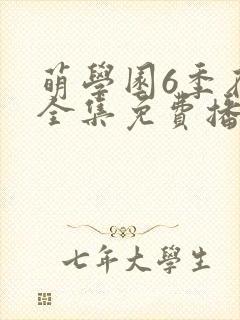 萌學園6季
全集免費播
七年大學生